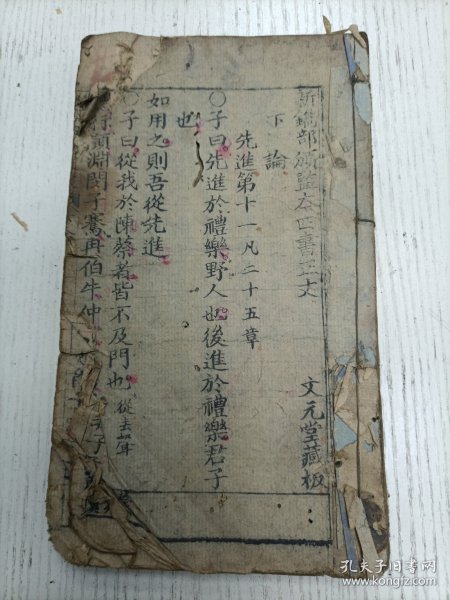 新鐫部頒監本四書正文
文元堂藏板
下論
先進第十一凡二十五章
○子曰先進於禮樂野人也後進於禮樂君子
也
如用之則吾從先進
○子曰從我於陳蔡者皆不及門也從去聲
顏淵閔子騫冉伯牛仲
孔夫子旧书网
www.kongfz.com